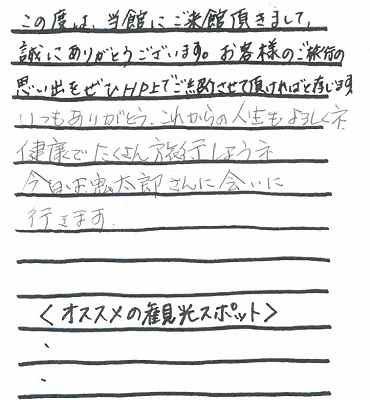 この度は、当館にご来館頂きまして、
誠にありがとうございます。お客様のご旅行の
思い出をぜひHP上でご紹介させて頂ければと存じます
いつもありがとう。これからの人生もよろしくネ
健康でたくさん旅行しようネ
今日は鬼太郎さんに会いに
行きます。
〈オススメの観光スポット〉
・
・